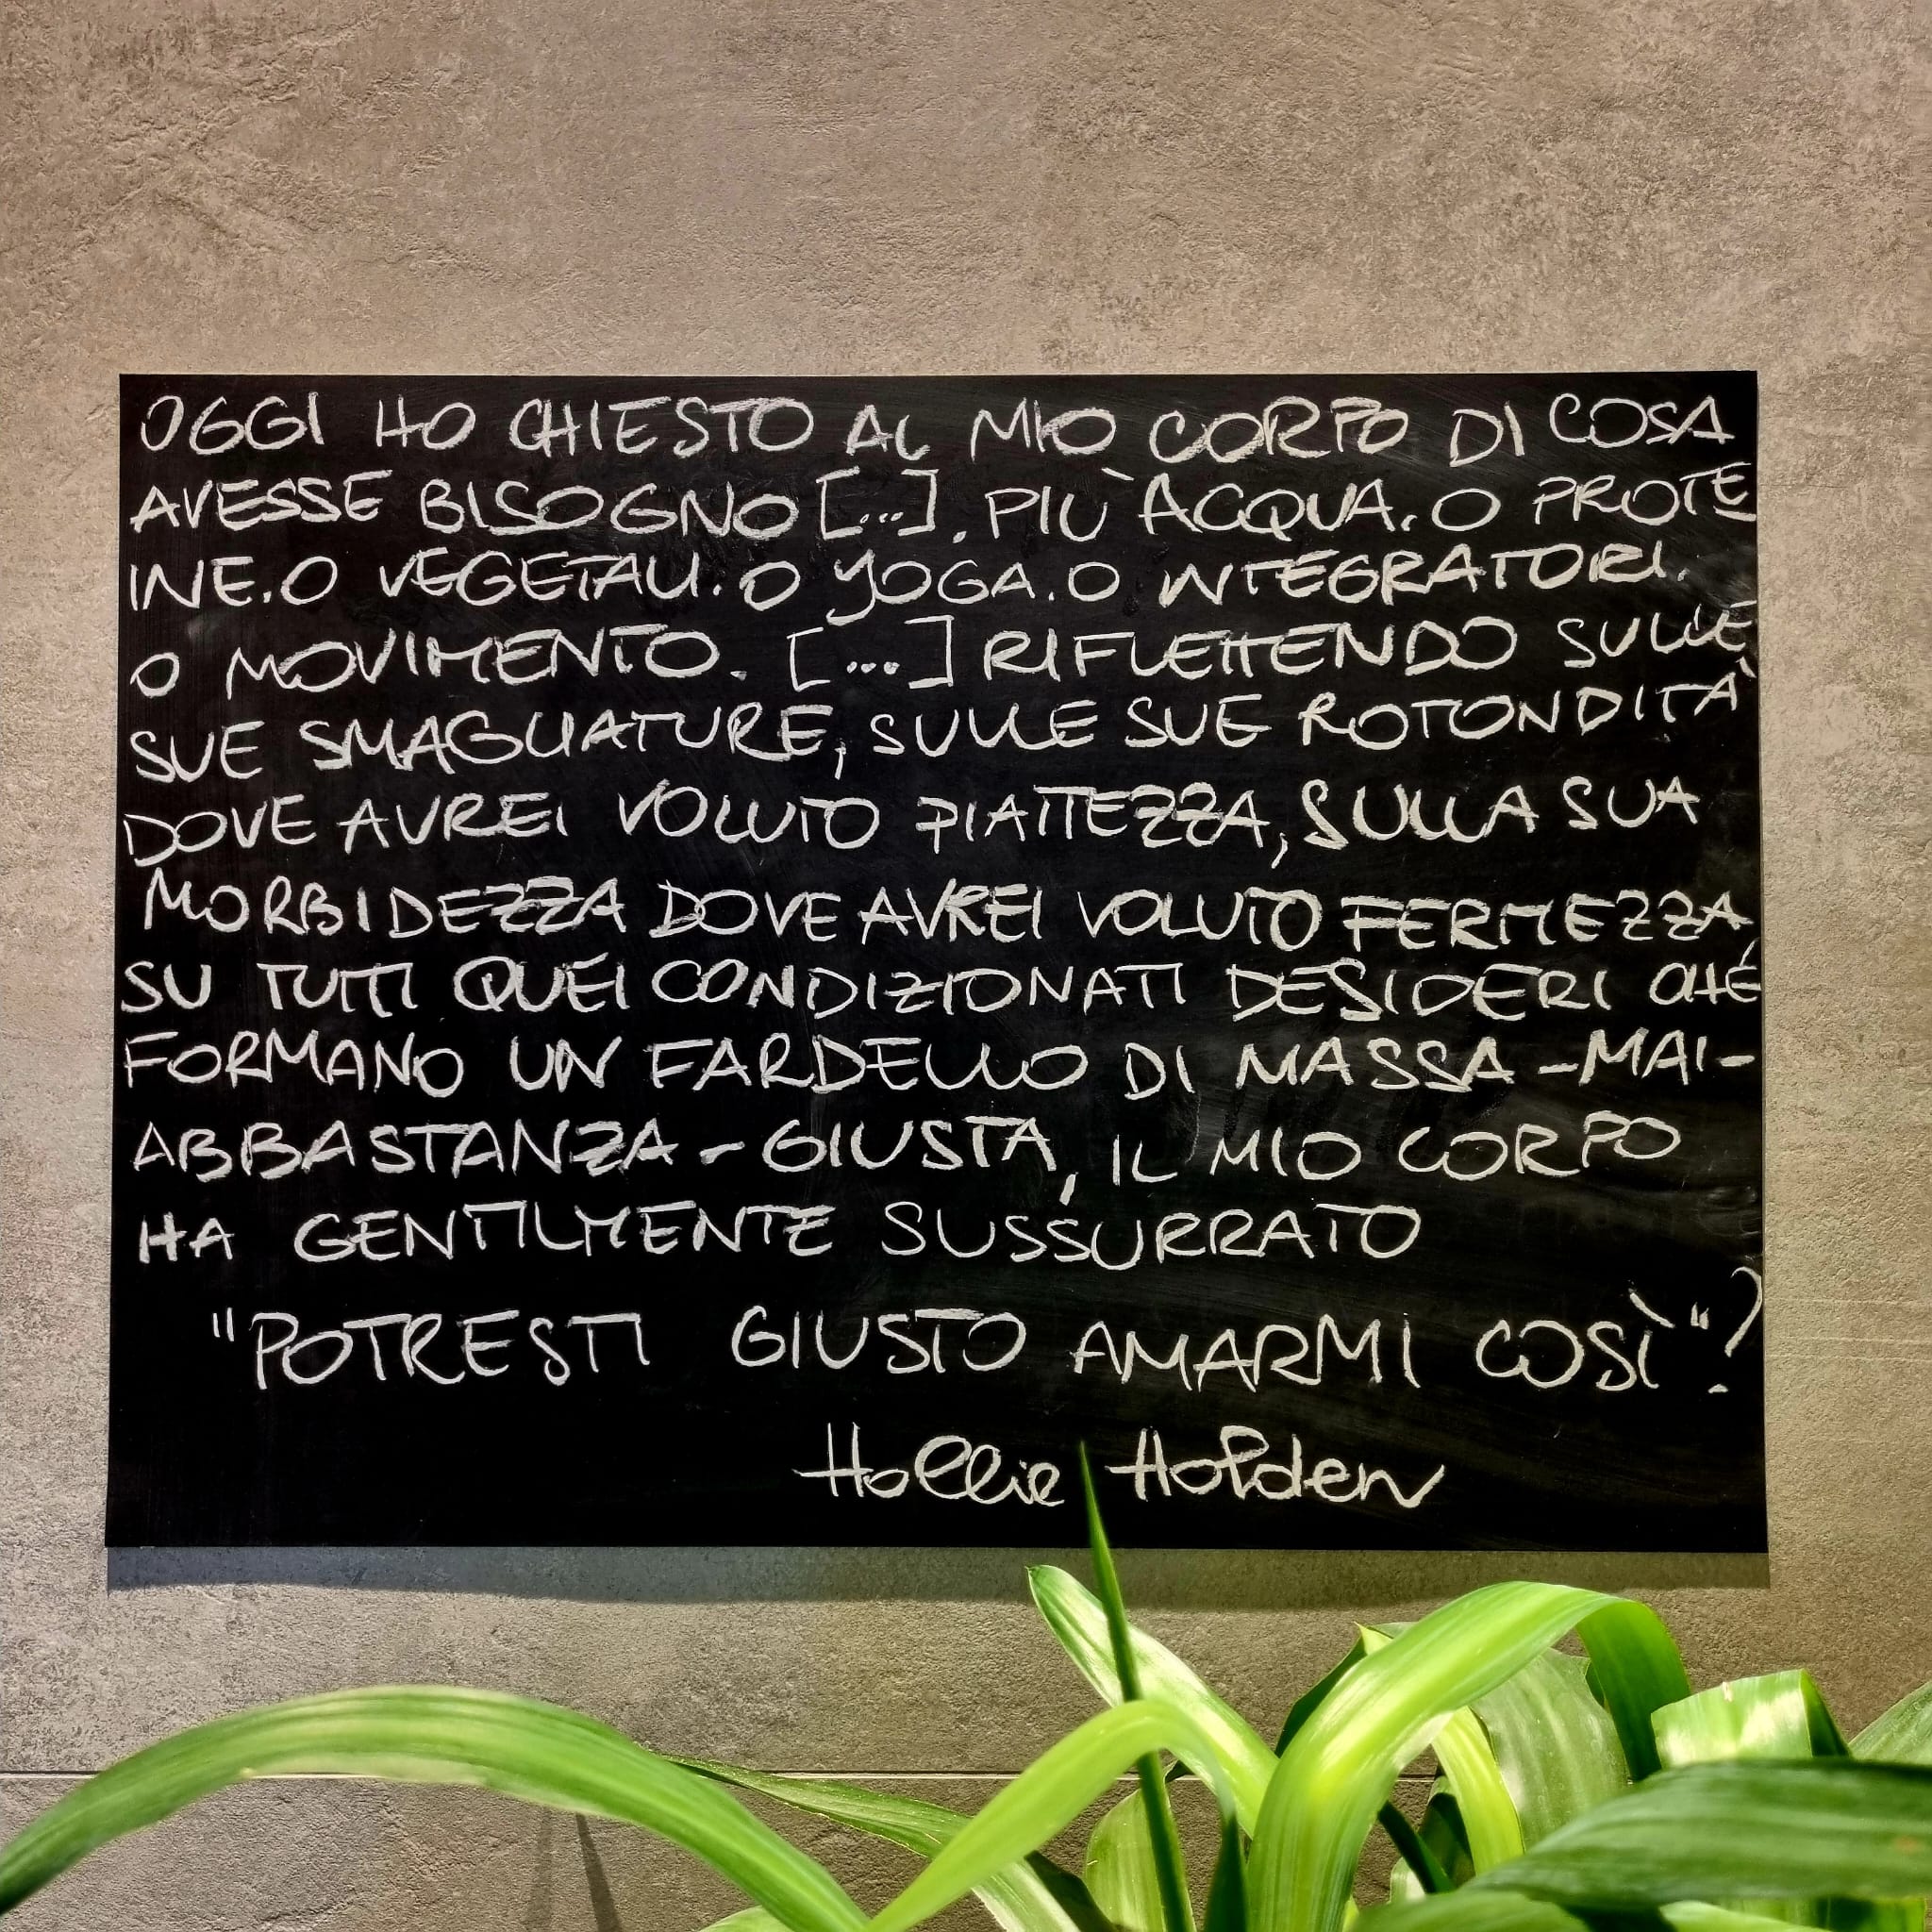 OGGI HO CHIESTO AL MIO CORPO DI COSA
AVESSE BISOGNO [...]. PIÙ ACQUA. O PROTE
INE. O VEGETALI. O YOGA. O INTEGRATORI.
O MOVIMENTO. [...] RIFLETTENDO SULLE
SUE SMAGLIATURE, SULLE SUE ROTONDITÀ
DOVE AVREI VOLUTO PIATTEZZA, SULLA SUA
MORBIDEZZA DOVE AVREI VOLUTO FERMEZZA
SU TUTTI QUEI CONDIZIONATI DESIDERI CHE
FORMANO UN FARDELLO DI MASSA -MAI-
ABBASTANZA - GIUSTA, IL MIO CORPO
HA GENTILMENTE SUSSURRATO
"POTRESTI GIUSTO AMARMI COSÌ"?
Hollie Holden